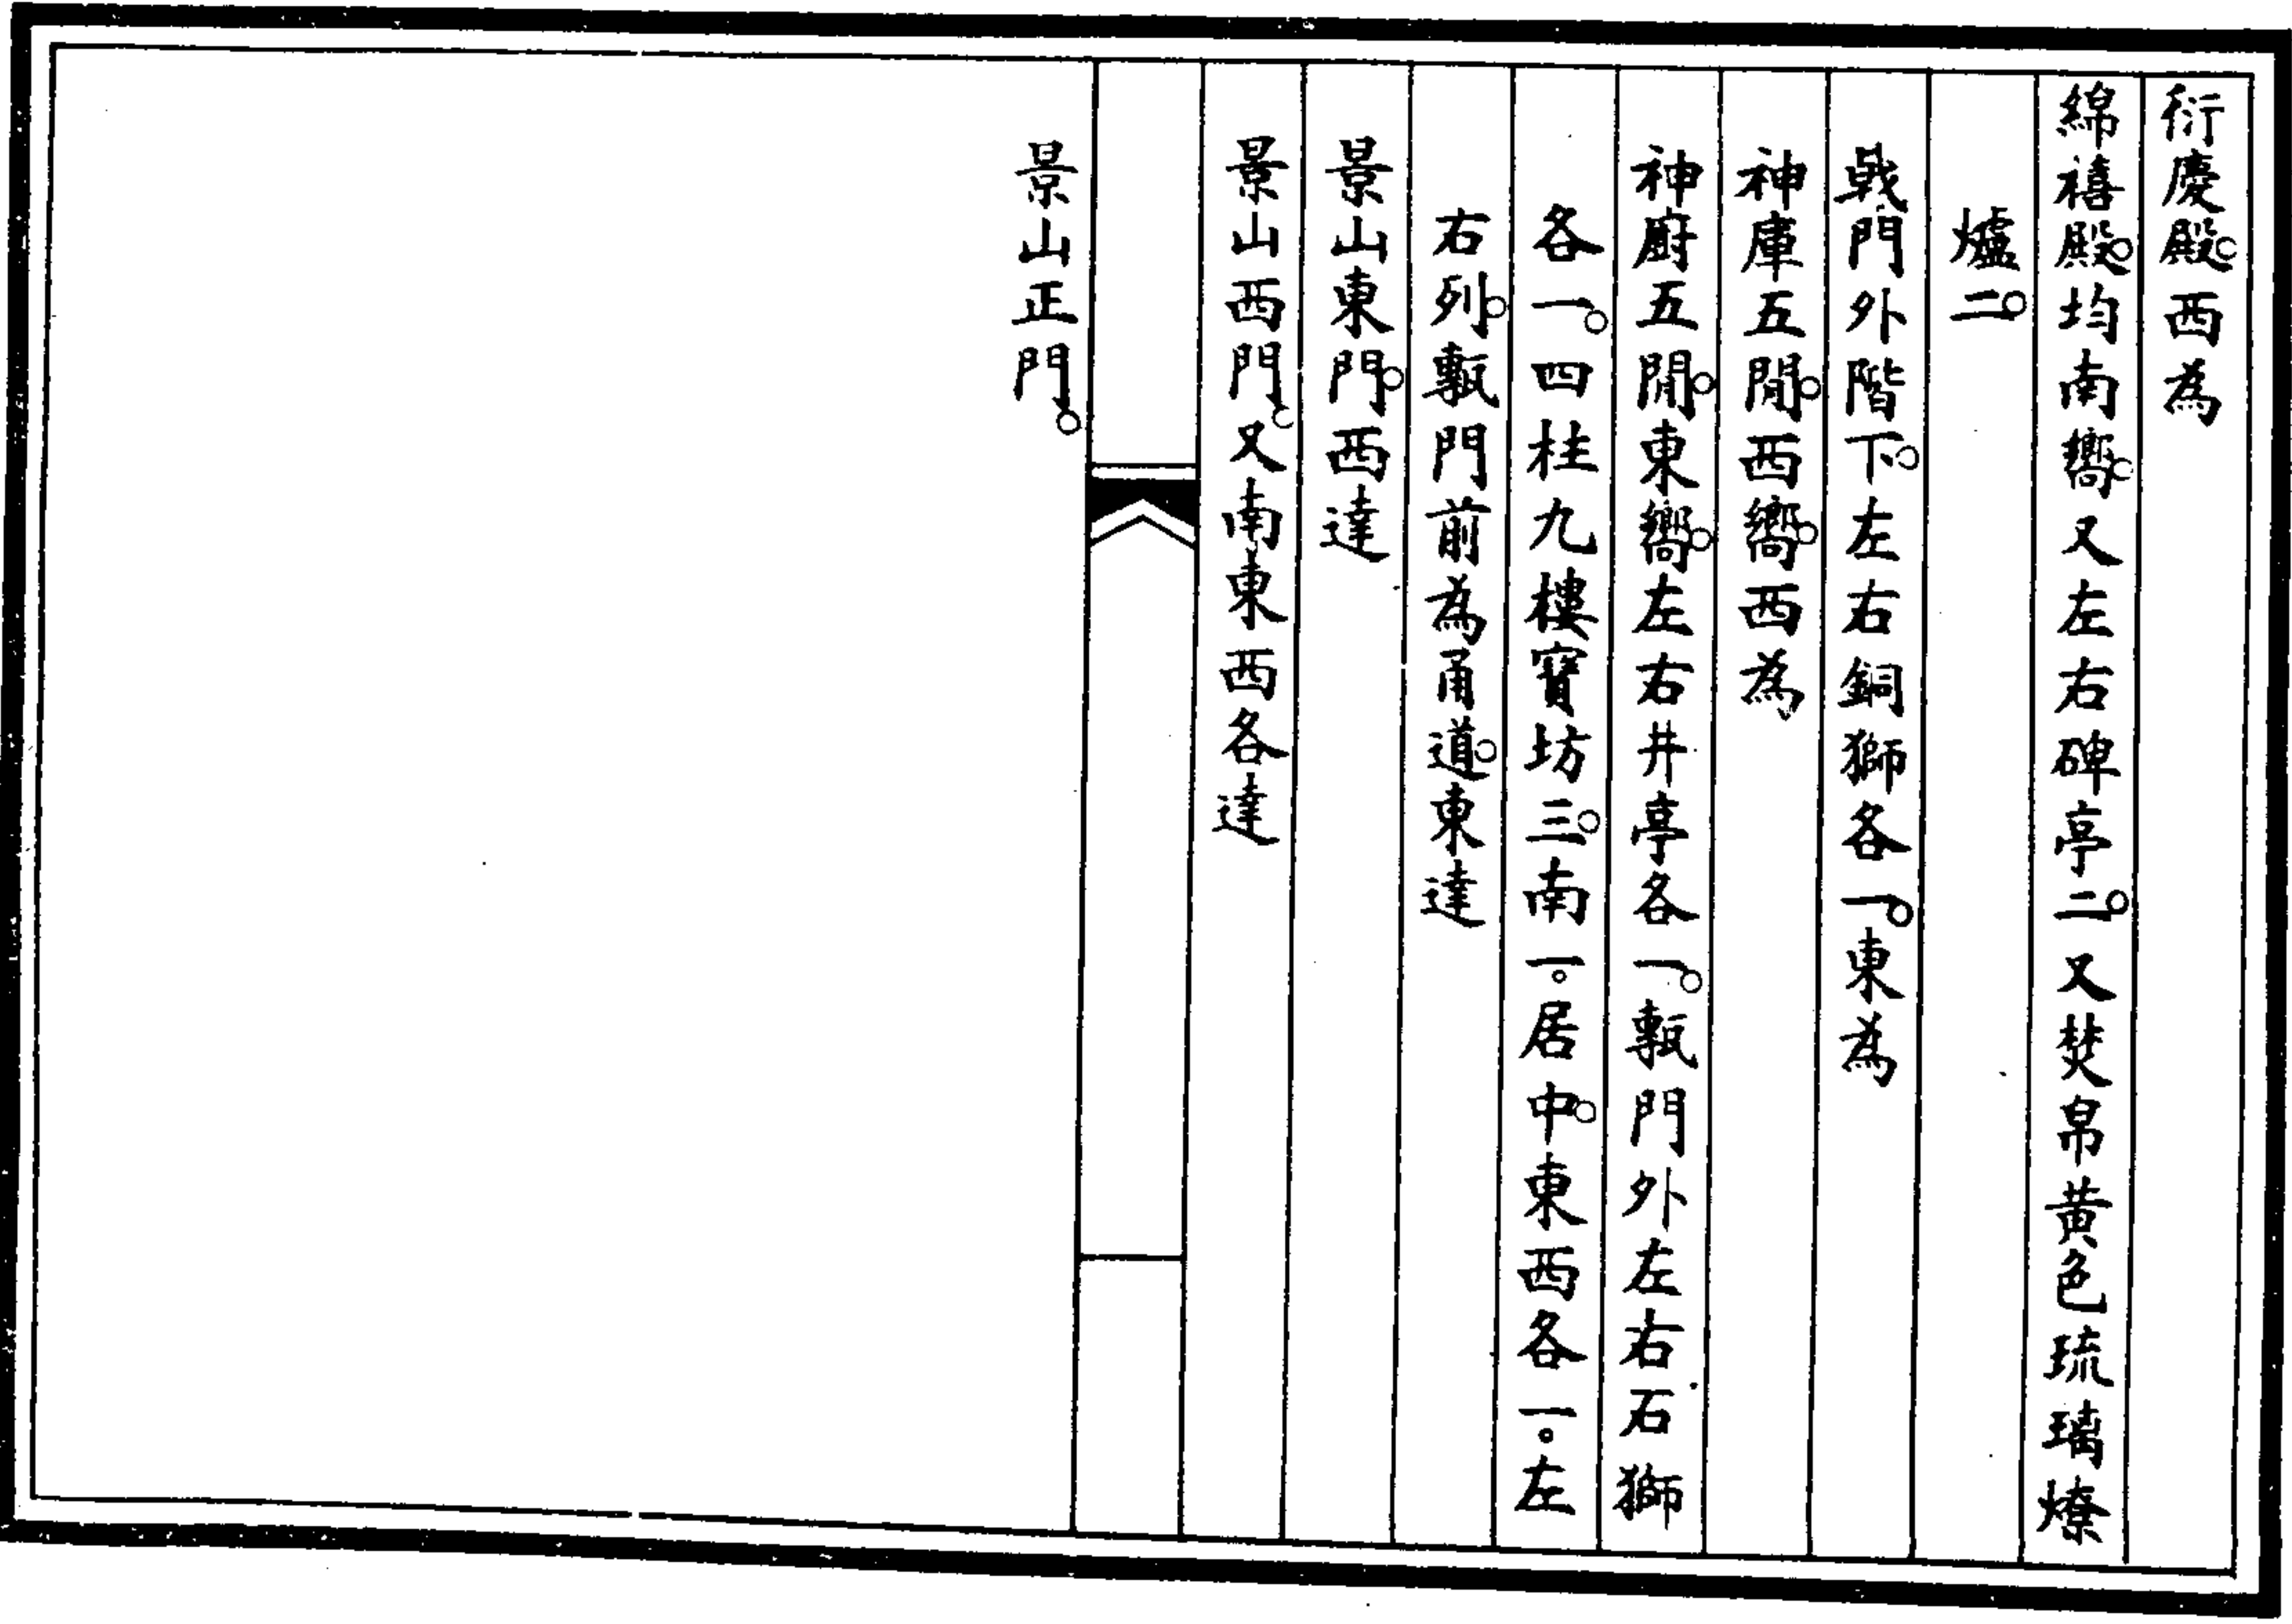 衍慶殿。西為
綿禧殿。均南嚮。又左右碑亭二。又焚帛黄色琉璃燎
爐二。
戟門外階下。左右銅獅各一。東為
神庫五閒。西嚮。西為
神廚五閒。東嚮。左右井亭各一。甎門外左右石獅
各一。四柱九樓寶坊三。南一。居中。東西各一。左
右列。甎門前為甬道。東達
景山東門。西達
景山西門。又南東西各達
景山正門。